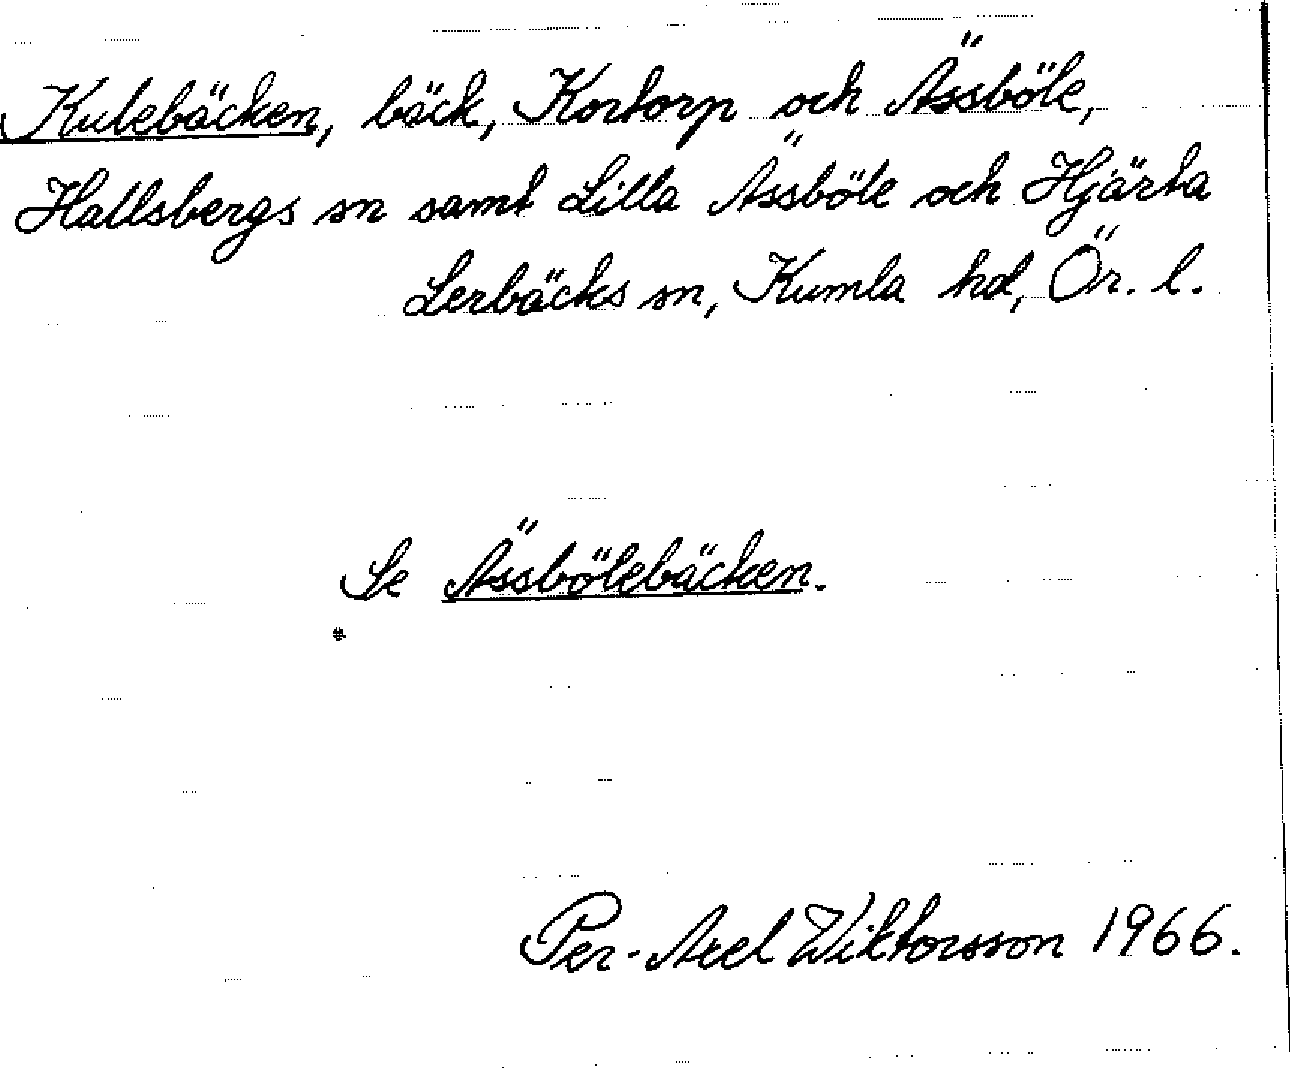 Kulebäcken, bäck, Kortorp och Ässböle,
Hallsbergs sn samt Lilla Ässböle och Hjärta
Lerbäcks sn, Kumla hd, Ör. l.
Se Ässbölebäcken.
Per-Axel Wiktorsson 1966.